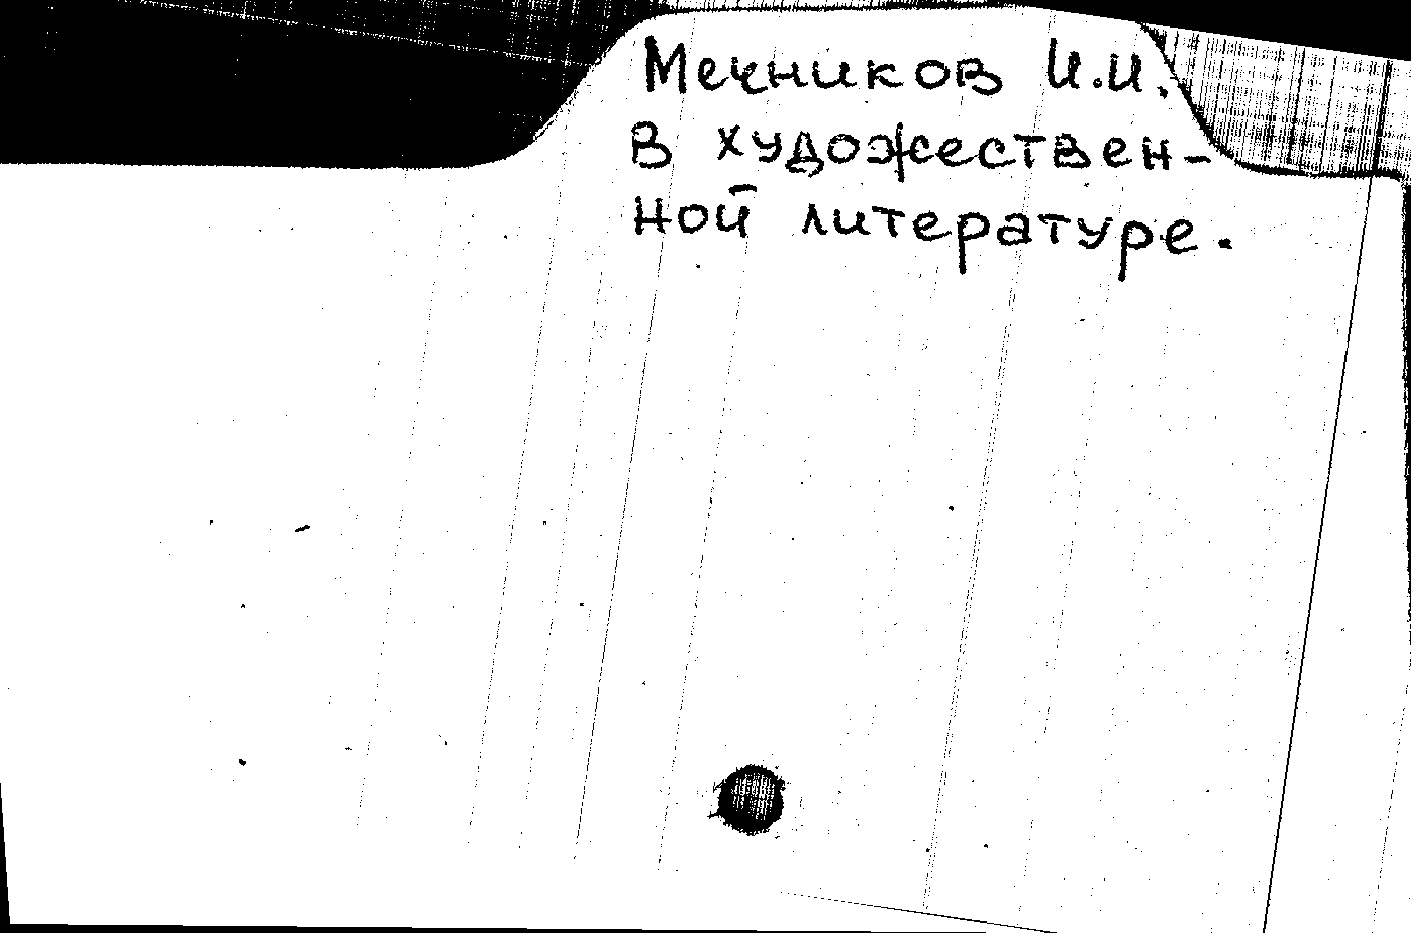 Мечников И.И.
в художествен-
ной литературе.